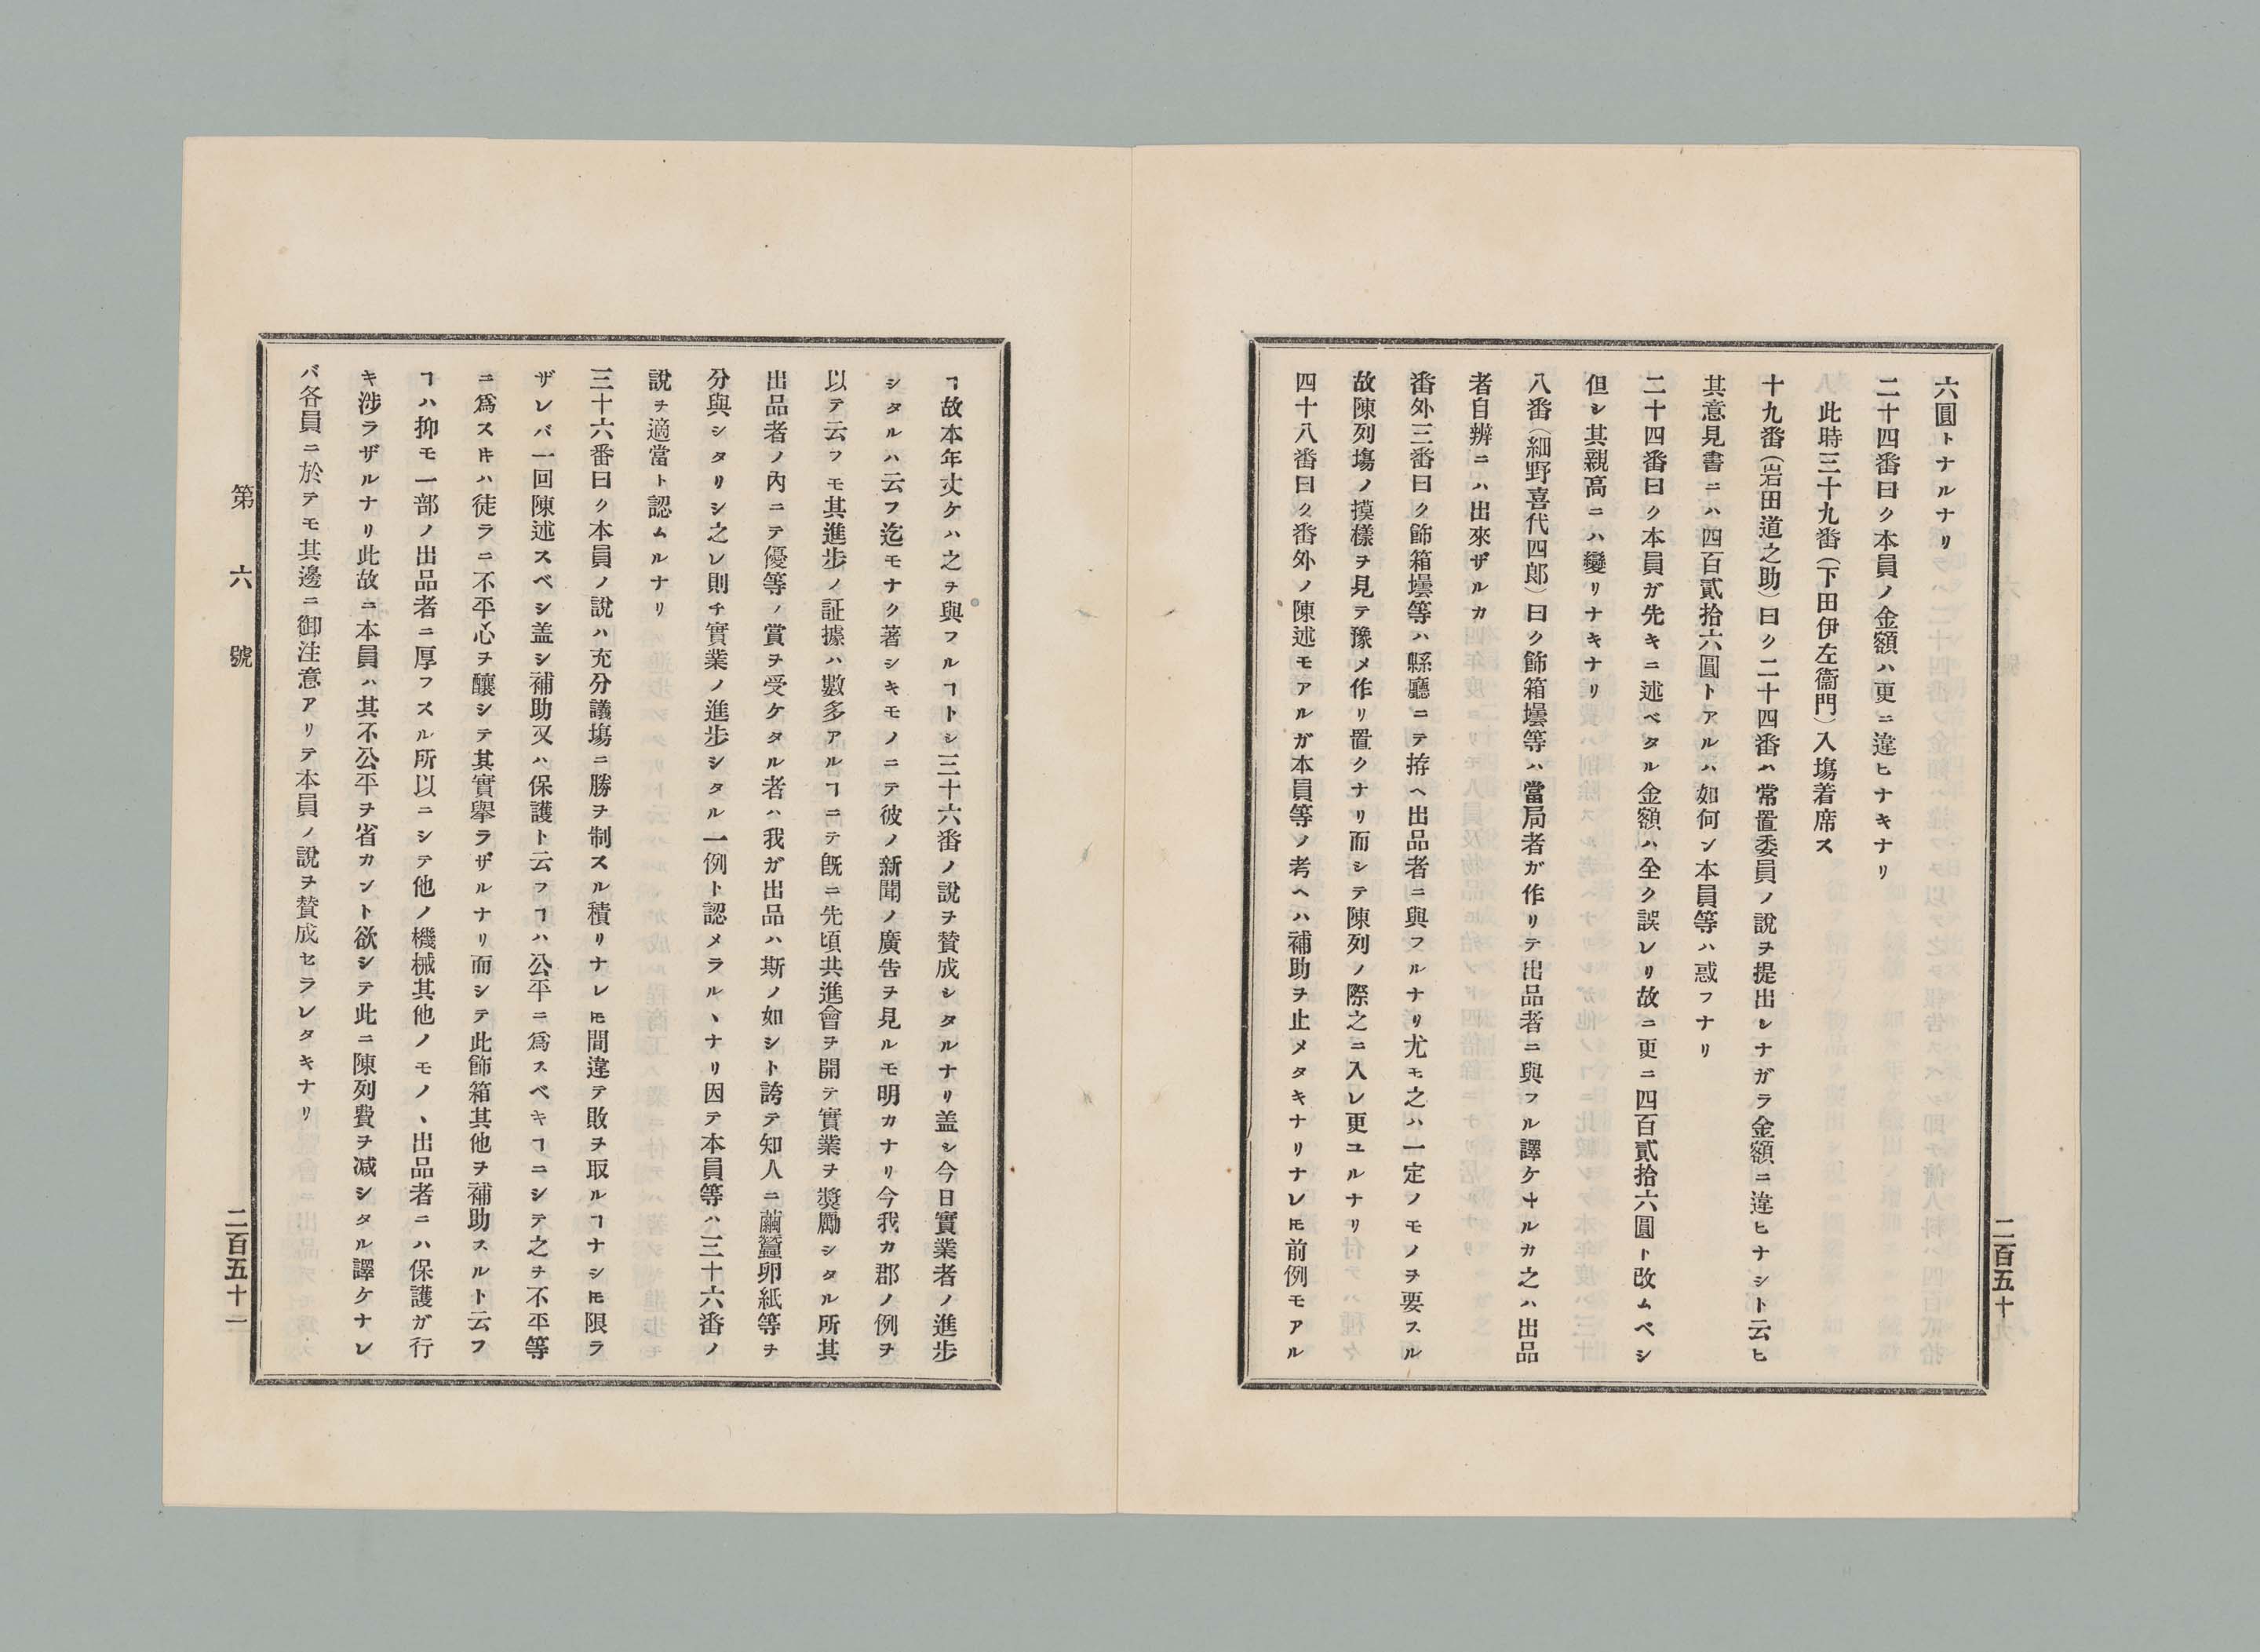 六圓トナルナリ
二十四番曰ク本員ノ金額ハ更ニ違ヒナキナリ
此時三十九番(下田伊左衞門)入塲着席ス
十九番(岩田道之助)曰ク二十四番ハ常置委員ノ說ヲ提出シナガラ金額ニ違ヒナシト云ヒ
其意見書ニハ四百貳拾六圓トアルハ如何ン本員等ハ惑フナリ
二十四番曰ク本員ガ先キニ述ベタル金額ハ全ク誤レリ故ニ更ニ四百貳拾六圓ト改ムベシ
但シ其親高ニハ變リナキナリ
八番(細野喜代四郎)曰ク飾箱壜等ハ當局者ガ作リテ出品者ニ與フル譯ケナルカ之ハ出品
者自辨ニハ出來ザルカ
番外三番曰ク飾箱壜等ハ縣廳ニテ拵ヘ出品者ニ與フルナリ尤モ之ハ一定ノモノヲ要スル
故陳列塲ノ摸樣ヲ見テ豫メ作リ置クナリ而シテ陳列ノ際之ニ入レ更ユルナリ
四十八番曰ク番外ノ陳述モアルガ本員等ノ考ヘハ補助ヲ止メタキナリナレ𪜈前例モアル
二百五十
ヿ故本年丈ケハ之ヲ與フルヿトシ三十六番ノ說ヲ賛成シタルナリ盖シ今日實業者ノ進步
シタルハ云フ迄モナク著シキモノニテ彼ノ新聞ノ廣告ヲ見ルモ明カナリ今我カ郡ノ例ヲ
以テ云フモ其進步ノ証據ハ數多アルヿニテ旣ニ先頃共進會ヲ開テ實業ヲ奬勵シタル所其
出品者ノ內ニテ優等ノ賞ヲ受ケタル者ハ我ガ出品ハ斯ノ如シト誇テ知人ニ繭蠶卵紙等ヲ
分與シタリシ之レ則チ實業ノ進步シタル一例ト認メラルヽナリ因テ本員等ハ三十六番ノ
說ヲ適當ト認ムルナリ
三十六番曰ク本員ノ說ハ充分議塲ニ勝ヲ制スル積リナレ𪜈間違テ敗ヲ取ルヿナシ𪜈限ラ
ザレバ一回陳述スベシ盖シ補助又ハ保護ト云フヿハ公平ニ爲スベキヿニシテ之ヲ不平等
ニ爲ス𪜈ハ徒ラニ不平心ヲ釀シテ其實擧ラザルナリ而シテ此飾箱其他ヲ補助スルト云フ
ヿハ抑モ一部ノ出品者ニ厚フスル所以ニシテ他ノ機械其他ノモノヽ出品者ニハ保護ガ行
キ涉ラザルナリ此故ニ本員ハ其不公平ヲ省カント欲シテ此ニ陳列費ヲ减シタル譯ケナレ
バ各員ニ於テモ其邊ニ御注意アリテ本員ノ說ヲ賛成セラレタキナリ
第六號
二百五十一